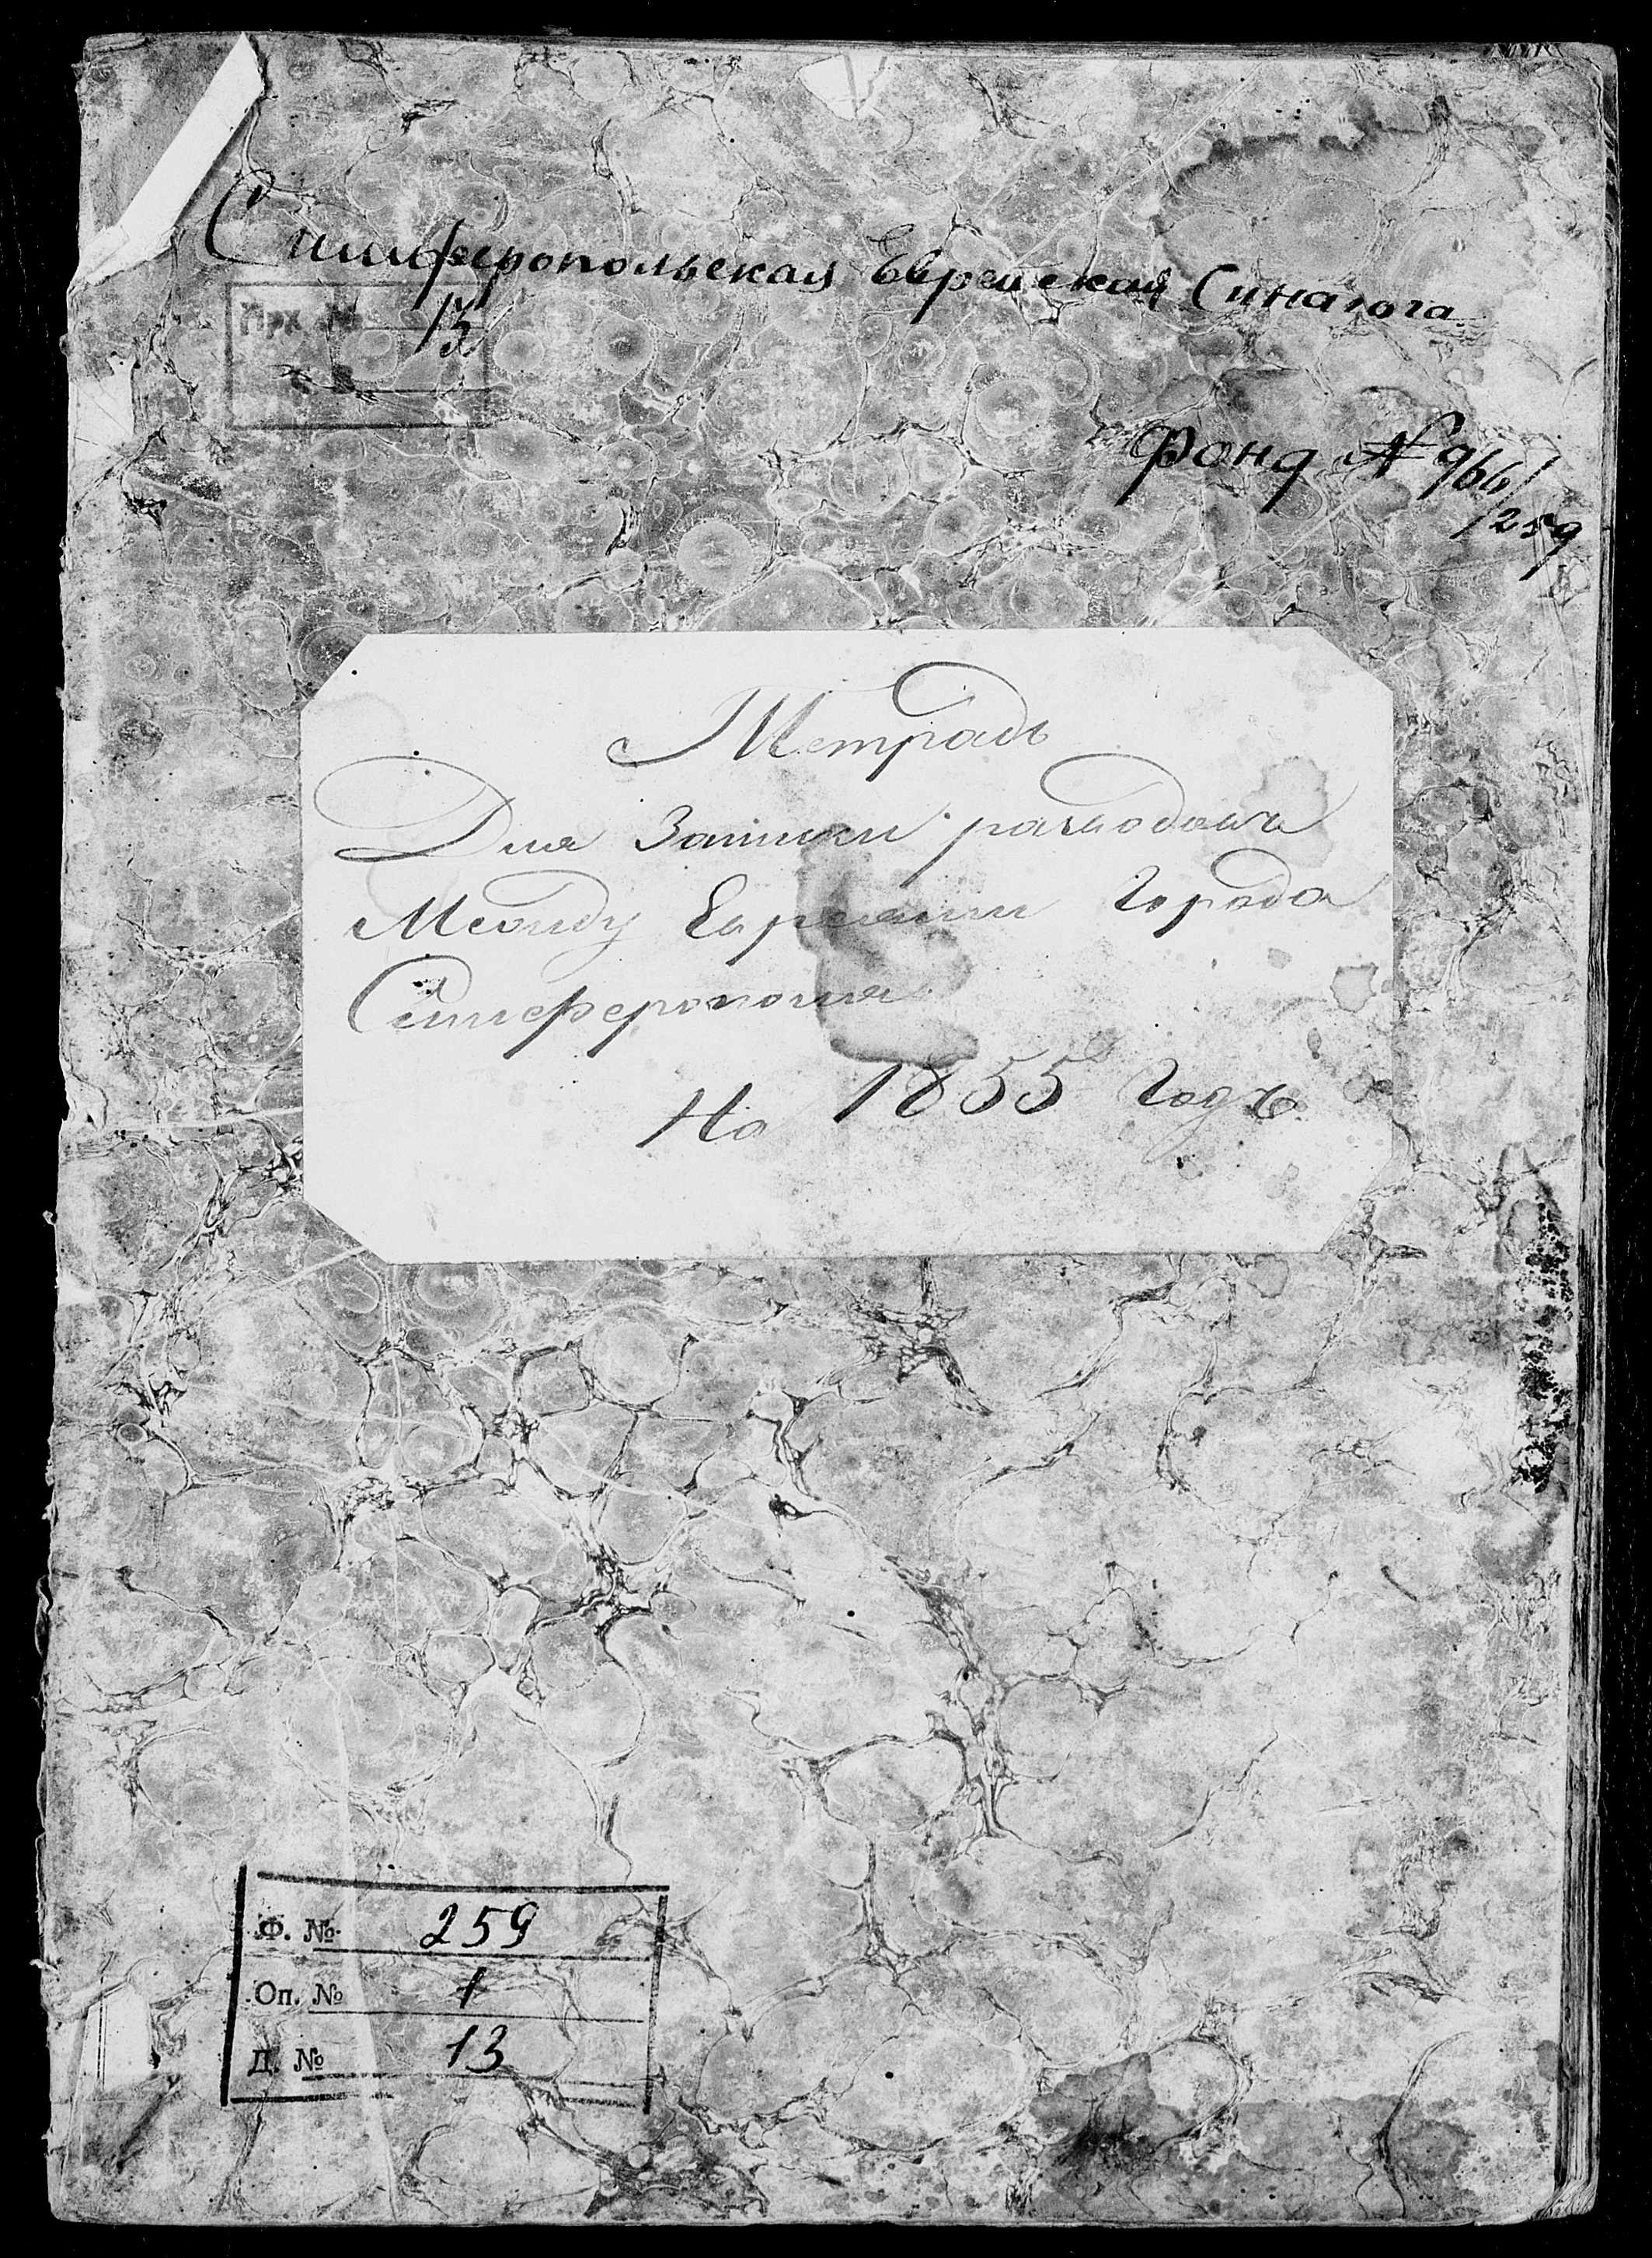 Симферопольская Еврейская Синагога
Арх. № 13
Фонд № 966/259
Тетрадь
Для Записки разводовъ
Между Евреями Города
Симферополя
На 1855 Годъ
Ф. № 259
Оп. № 1
Д. № 13